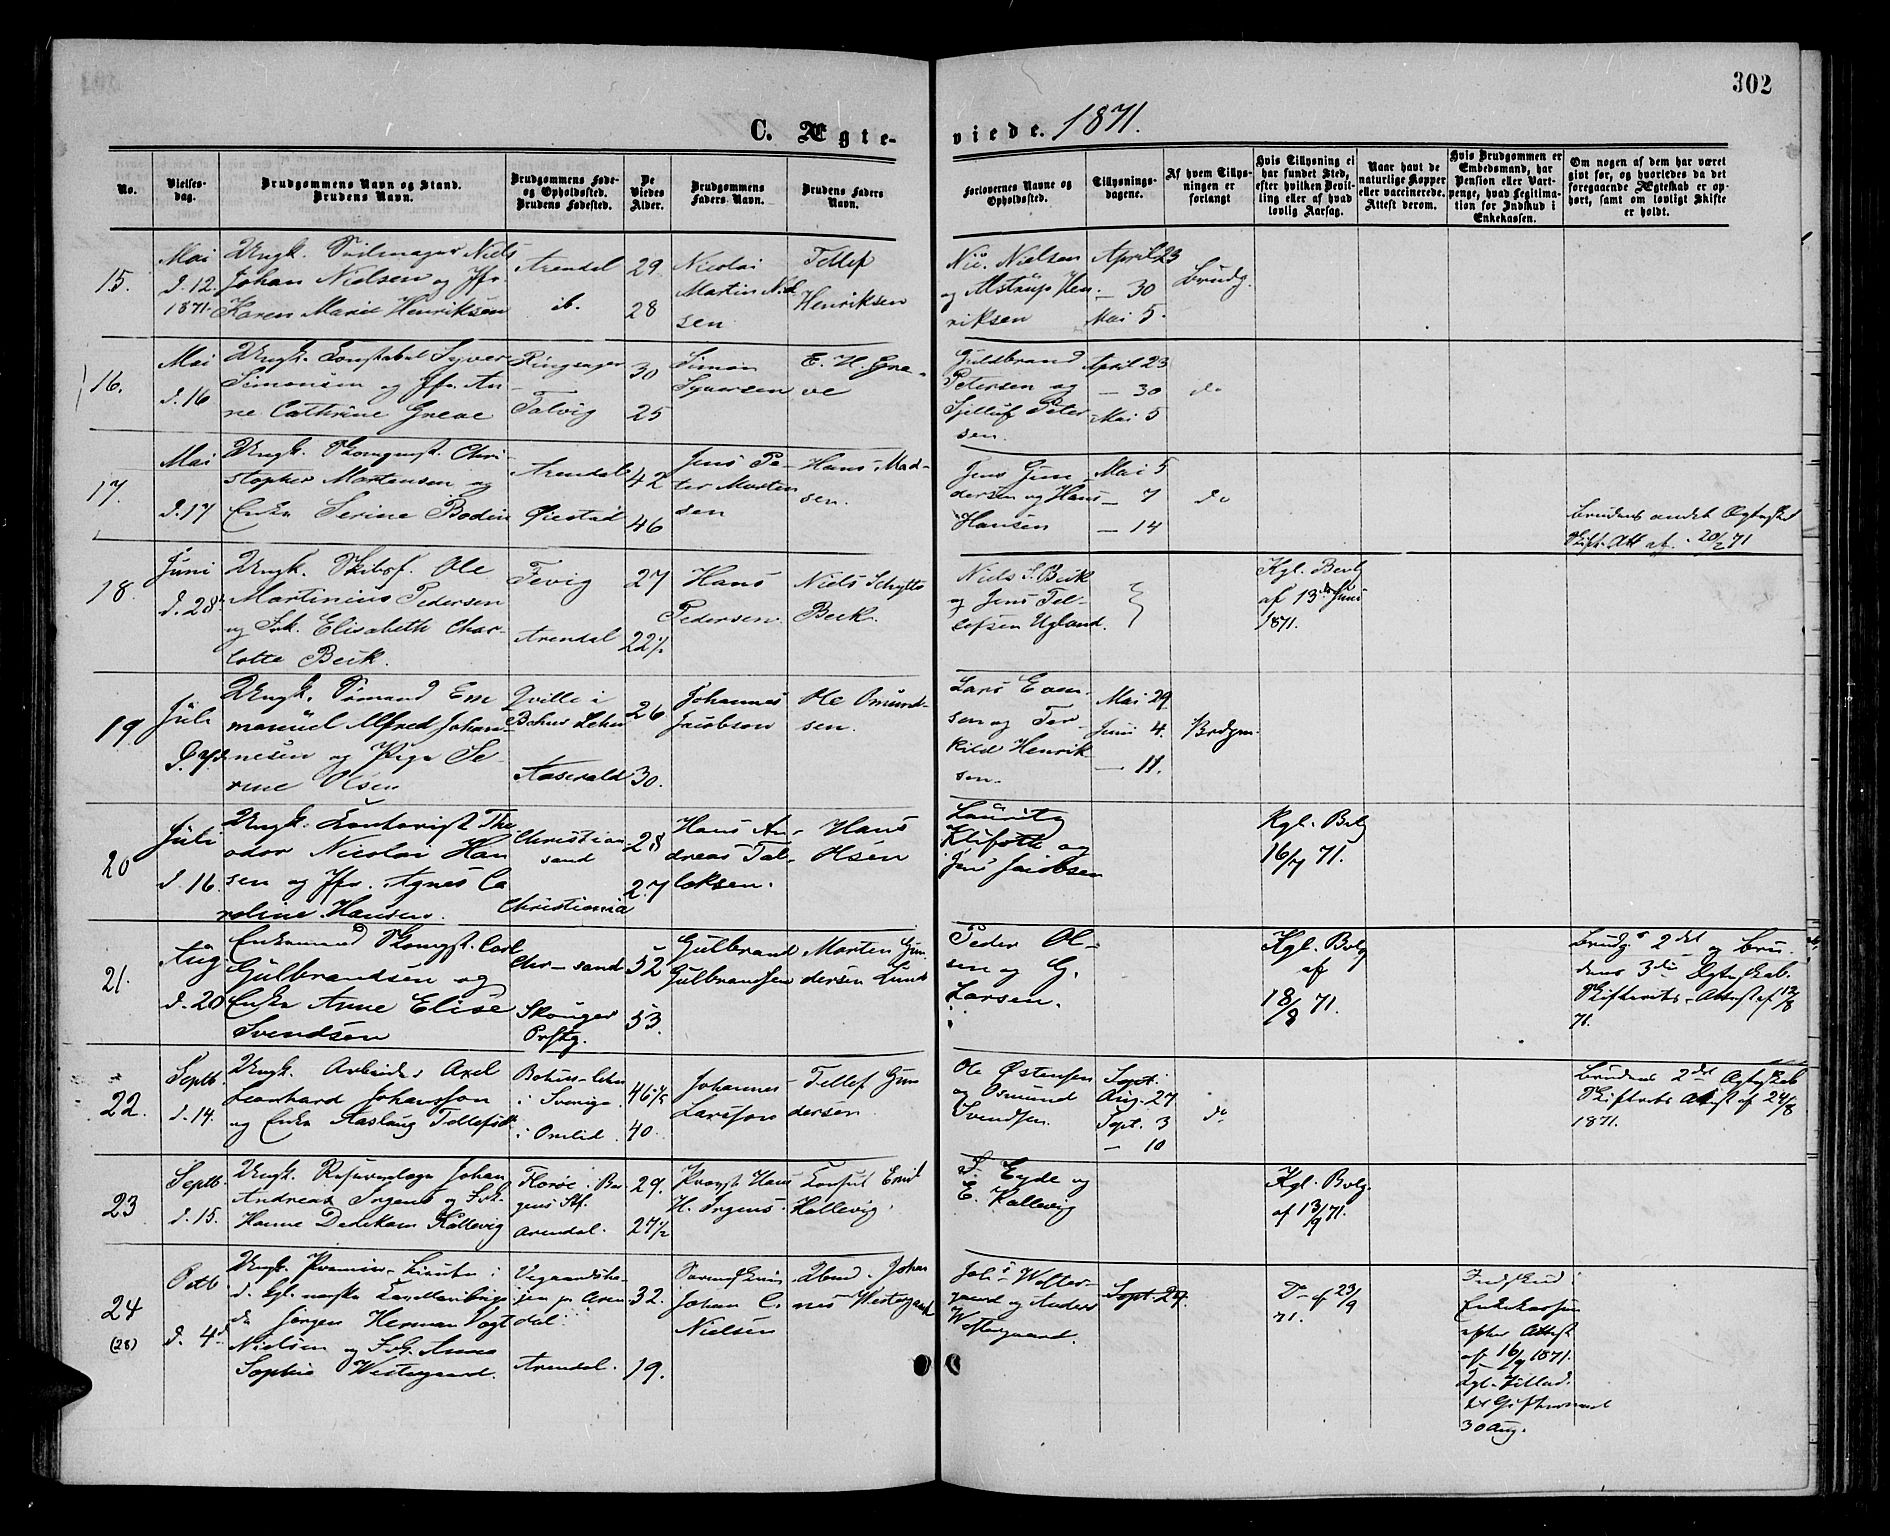 302
C. Ægte-
viede. 1871.
No.
Vielses-
dag.
Brudgommens Navn og Stand.
Brudens Navn.
Brudgommens Føde-
og Opholdssted.
Brudens Fødested.
De
Viedes
Alder.
Brudgommens
Faders Navn.
Brudens Faders
Navn.
Forlovernes Navne og
Opholdssted.
Tillysnings-
dagene.
Af hvem Tillys-
ningen er
forlangt
Hvis Tillysning ei
har fundet Sted,
efter hvilken Bevil-
ling eller af hvad
lovlig Aarsag.
Naar havt de
naturlige Kopper
eller vaccinerede.
Attest derom.
Hvis Brudgommen er
Embedsmand, har
Pension eller Vart-
penge, hvad Legitima-
tion for Indskud i
Enkekassen.
Om nogen af dem har været
givt før, og hvorledes da det
foregaaende Ægteskab er op-
hørt, samt om lovligt Skifte
er holdt.
15.
Mai
d. 12
1871.
Ungk. Seilmager Niels
Johan Nielsen og Jfr.
Karen Marie Henriksen
Arendal
ib.
29.
28
Nicolai
Martin Niel
sen
Tellef
Henriksen
Nic. Nielsen
og Alstrup Hen
riksen
April 23
— 30
Mai 5.
Brudg.
16.
Mai
d. 16
Ungk. Constabel Syver
Simonsen og Jfr. An
ne Cathrine Greve
Ringsager
Talvig
30
25
Simon
Syversen
E. H. Gre-
ve
Guldbrand
Petersen og
Peter
sen.
April 23
— 30
Mai 5
do
17.
Mai
d. 17
Ungk. Chri
stopher Mortensen og
Enke Serine Bodin
Arendal
Øiestad
42
46
Jens Pe-
ter Morten
sen
Hans Mad-
sen.
Jens Gun
dersen og Hans
Hansen
Mai 5
— 7
— 14
do
Brudens andet Ægteskab
Skift. Att af 20/2 71
18.
Juni
d. 28
Ungk. Skibsf. Ole
Martinius Pedersen
og Frk. Elisabeth Char-
lotte Beck.
Fevig
Arendal
27
22 1/2
Hans
Pedersen.
Niels Schytte
Beck.
Niels S. Beck
og Jens Tel-
lefsen Ugland.
Kgl. Bevlg
af 13de Juni
1871.
19
Juli
Ungk. Sømand Em
manuel Alfred Johan-
nesen og Pige Se-
rine Olsen
Qville i
Bohus Lehn
Aaserald
26
30.
Johannes
Jacobsen
Ole Omund-
sen.
Lars Evan-
sen og Ter-
kild Henrik
sen.
Mai 29
Juni 4.
— 11.
Brdgm.
20
Juli
d. 16.
Ungk. Contorist The
odor Nicolai Han
sen og Jfr. Agnes Ca
roline Hansen.
Christian
sand
Christiania
28
27
Hans An-
dreas Tal-
laksen.
Hans
Olsen
Lauritz
Klifoth og
Jens Jacobsen
Kgl. Bvlg
16/7 71.
21.
Aug
d. 20
Enkemand Carl
Gulbrandsen og
Enke Anne Elise
Svendsen
Chr-sand
Skouger
Præstg.
52
53.
Gulbrand
Gulbrandsen
Morten Gun
dersen Lund
Peder Ol-
sen og G.
Larsen.
Kgl. Bvlg
af
18/8 71.
Brudgs 2det og Bru-
dens 3die Ægteskab.
Skifterets-Attest af 12/8
71.
22.
Septb.
d. 14.
Ungk. Arbeider Axel
Leonhard Johansson
og Enke Aaslaug Tellefsdt
Bohus-Lehn
i Sverige
i Omlid.
46 1/2
40.
Johannes
Larsson
Tellef Gun
dersen
Ole Østensen
og Osmund
Svendsen.
Sept.
Aug. 27
Sept. 3
— 10
do
Brudens 2det Ægteskab
Skifterets Attest af 24/8
1871.
23
Septb.
d. 15.
Ungk. Reservelæge Johan
Andreas Irgens og Frk.
Hanne Dedekam Kallevig
Florø i Ber-
gens Stf.
Arendal.
29.
27 1/2
Provst Hans
H. Irgens.
Consul
Kallevig.
S. Eyde og
E. Kallevig
Kgl. Bvlg.
af 13/9 71.
24
(28)
Octb
d. 4de
Ungk. Premier-Lieuten i
d. kgl. norske
Jørgen Herman Vogt
Nielsen og Frk. Anna
Sophie Westergaard.
Vegaardshe-
jen pr Aren
dal.
Arendal.
32.
19.
Johan C.
Nielsen
Johan
nes Westergaard
Wester-
gaard og Anders
Westergaard.
Sept. 29.
Do af 23/9
71.
Indskud i
Enkekassen
efter Attest
af 16/9 1871.
Kgl. Tillad.
til Giftermaal
30 Aug.